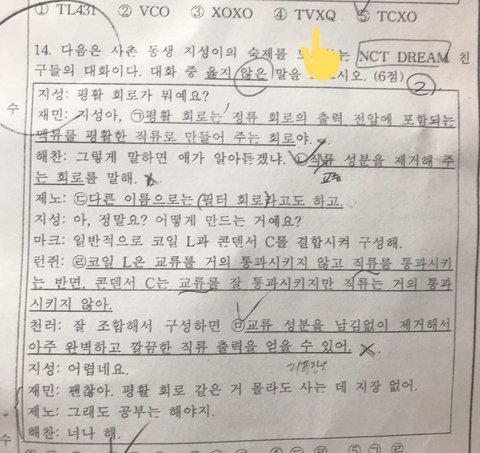 ① TL431 ② VCO ③ XOXO ④ TVXQ ⑤ TCXO
14. 다음은 사촌 동생 지성이의 숙제를 는 NCT DREAM 친
구들의 대화이다. 대화 중 옳지 않은 말을 시오. (6점) ②
수
지성: 평활 회로가 뭐예요?
재민: 지성아, ㉠평활 회로는 정류 회로의 출력 전압에 포함되는
맥류를 평활한 직류로 만들어 주는 회로야.
해찬: 그렇게 말하면 애가 알아듣겠냐. ㉡직류 성분을 제거해 주
는 회로를 말해.
교류
제노: ㉢다른 이름으로는 필터 회로라고도 하고.
지성: 아, 정말요? 어떻게 만드는 거예요?
마크: 일반적으로 코일 L과 콘덴서 C를 결합시켜 구성해.
런쥔: ㉣코일 L은 교류를 거의 통과시키지 않고 직류를 통과시키
는 반면, 콘덴서 C는 교류를 잘 통과시키지만 직류는 거의 통과
시키지 않아.
천러: 잘 조합해서 구성하면 ㉤교류 성분을 남김없이 제거해서
아주 완벽하고 깔끔한 직류 출력을 얻을 수 있어.
지성: 어렵네요.
재민: 괜찮아. 평활 회로 같은 거 몰라도 사는 데 지장 없어.
제노: 그래도 공부는 해야지.
해찬: 너나 해.
수